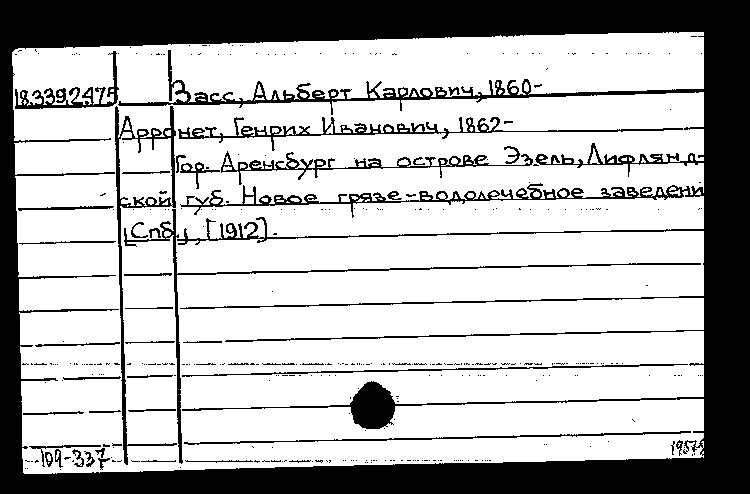 18.339.2.475 Засс, Альберт Карлович, 1860-
Арронет, Генрих Иванович, 1862-
Гор. Аренсбург на острове Эзель, Лифлянд-
ской губ. Новое грязе-водолечебное заведени
[Спб], [1912].
109-337